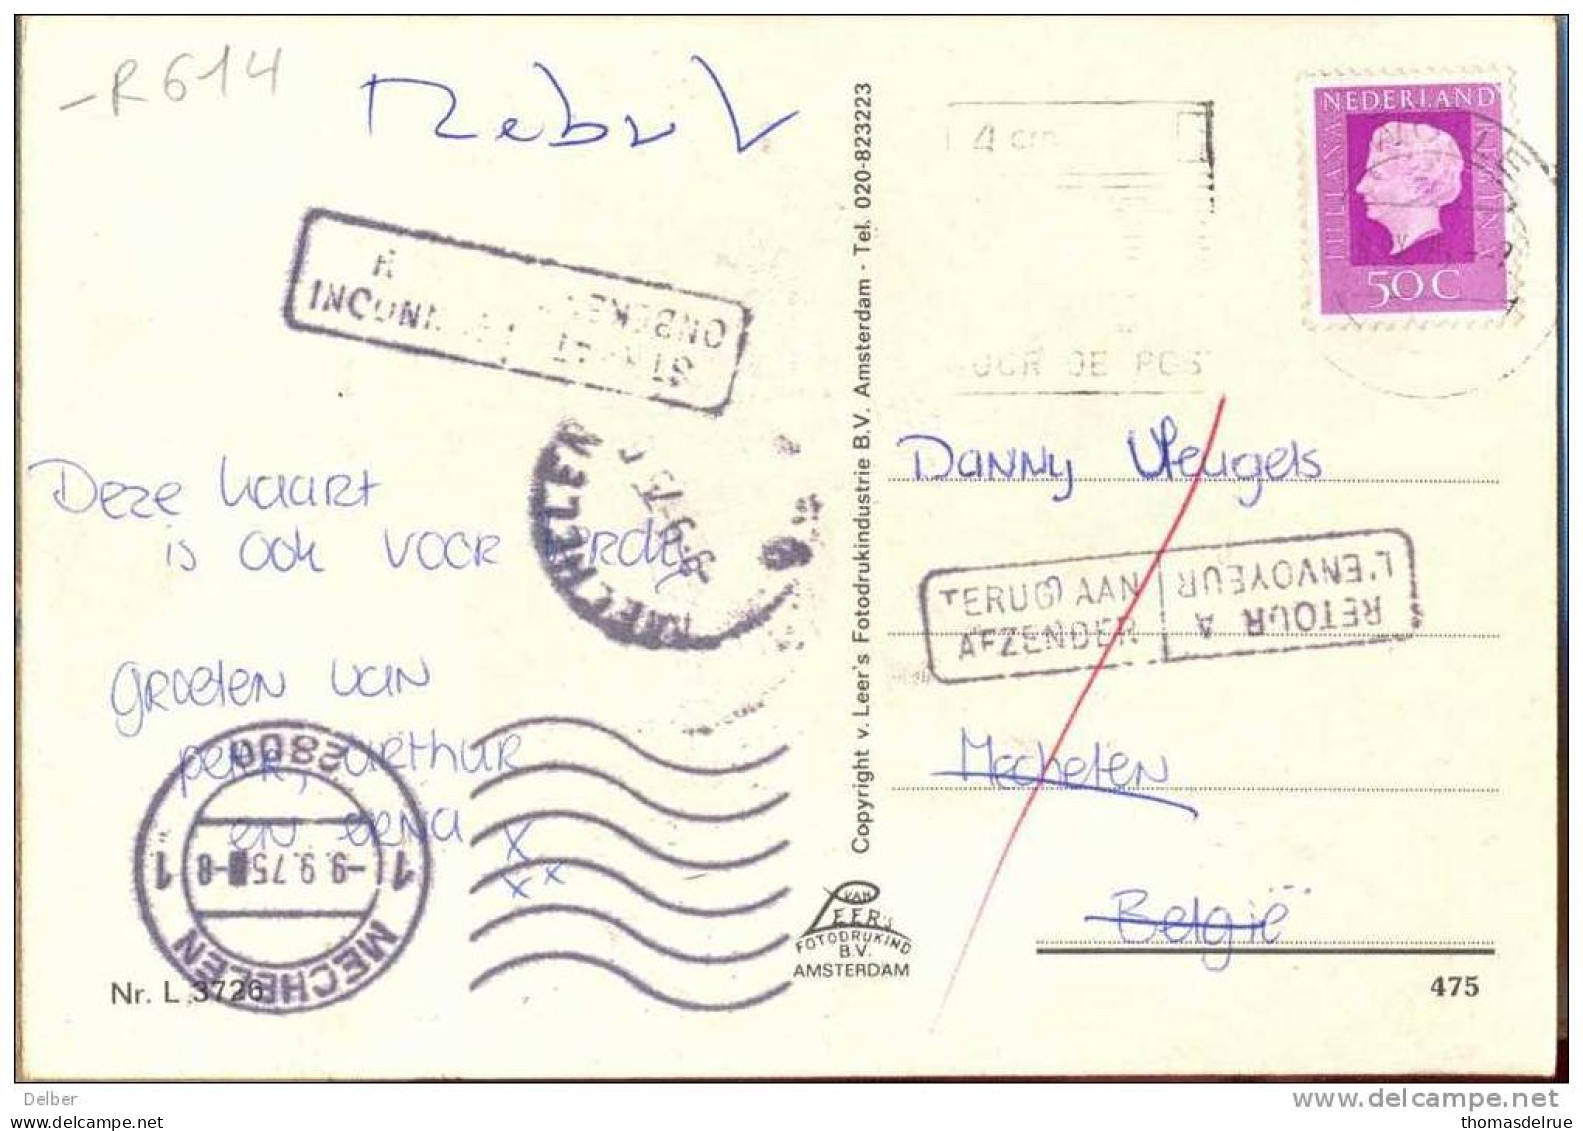 -R614
Rebut
NEDERLAND
JULIANA REGINA
50C
4 cm
DE POS
INCONNU
ONBEKE
MECHELEN
Deze kaart
is ook voor
groeten van
peter, arthur
en erna x
x x
2800
1 -9.9.75 -8 1
MECHELEN
Nr. L 3726
Copyright v. Leer's Fotodrukindustrie B.V. Amsterdam - Tel. 020-823223
VAN
LEER'S
FOTODRUKIND
B.V.
AMSTERDAM
Danny Vleugels
TERUG AAN
AFZENDER
RETOUR A
L'ENVOYEUR
Mechelen
België
475
Delber
delcampe.net
thomasdelrue